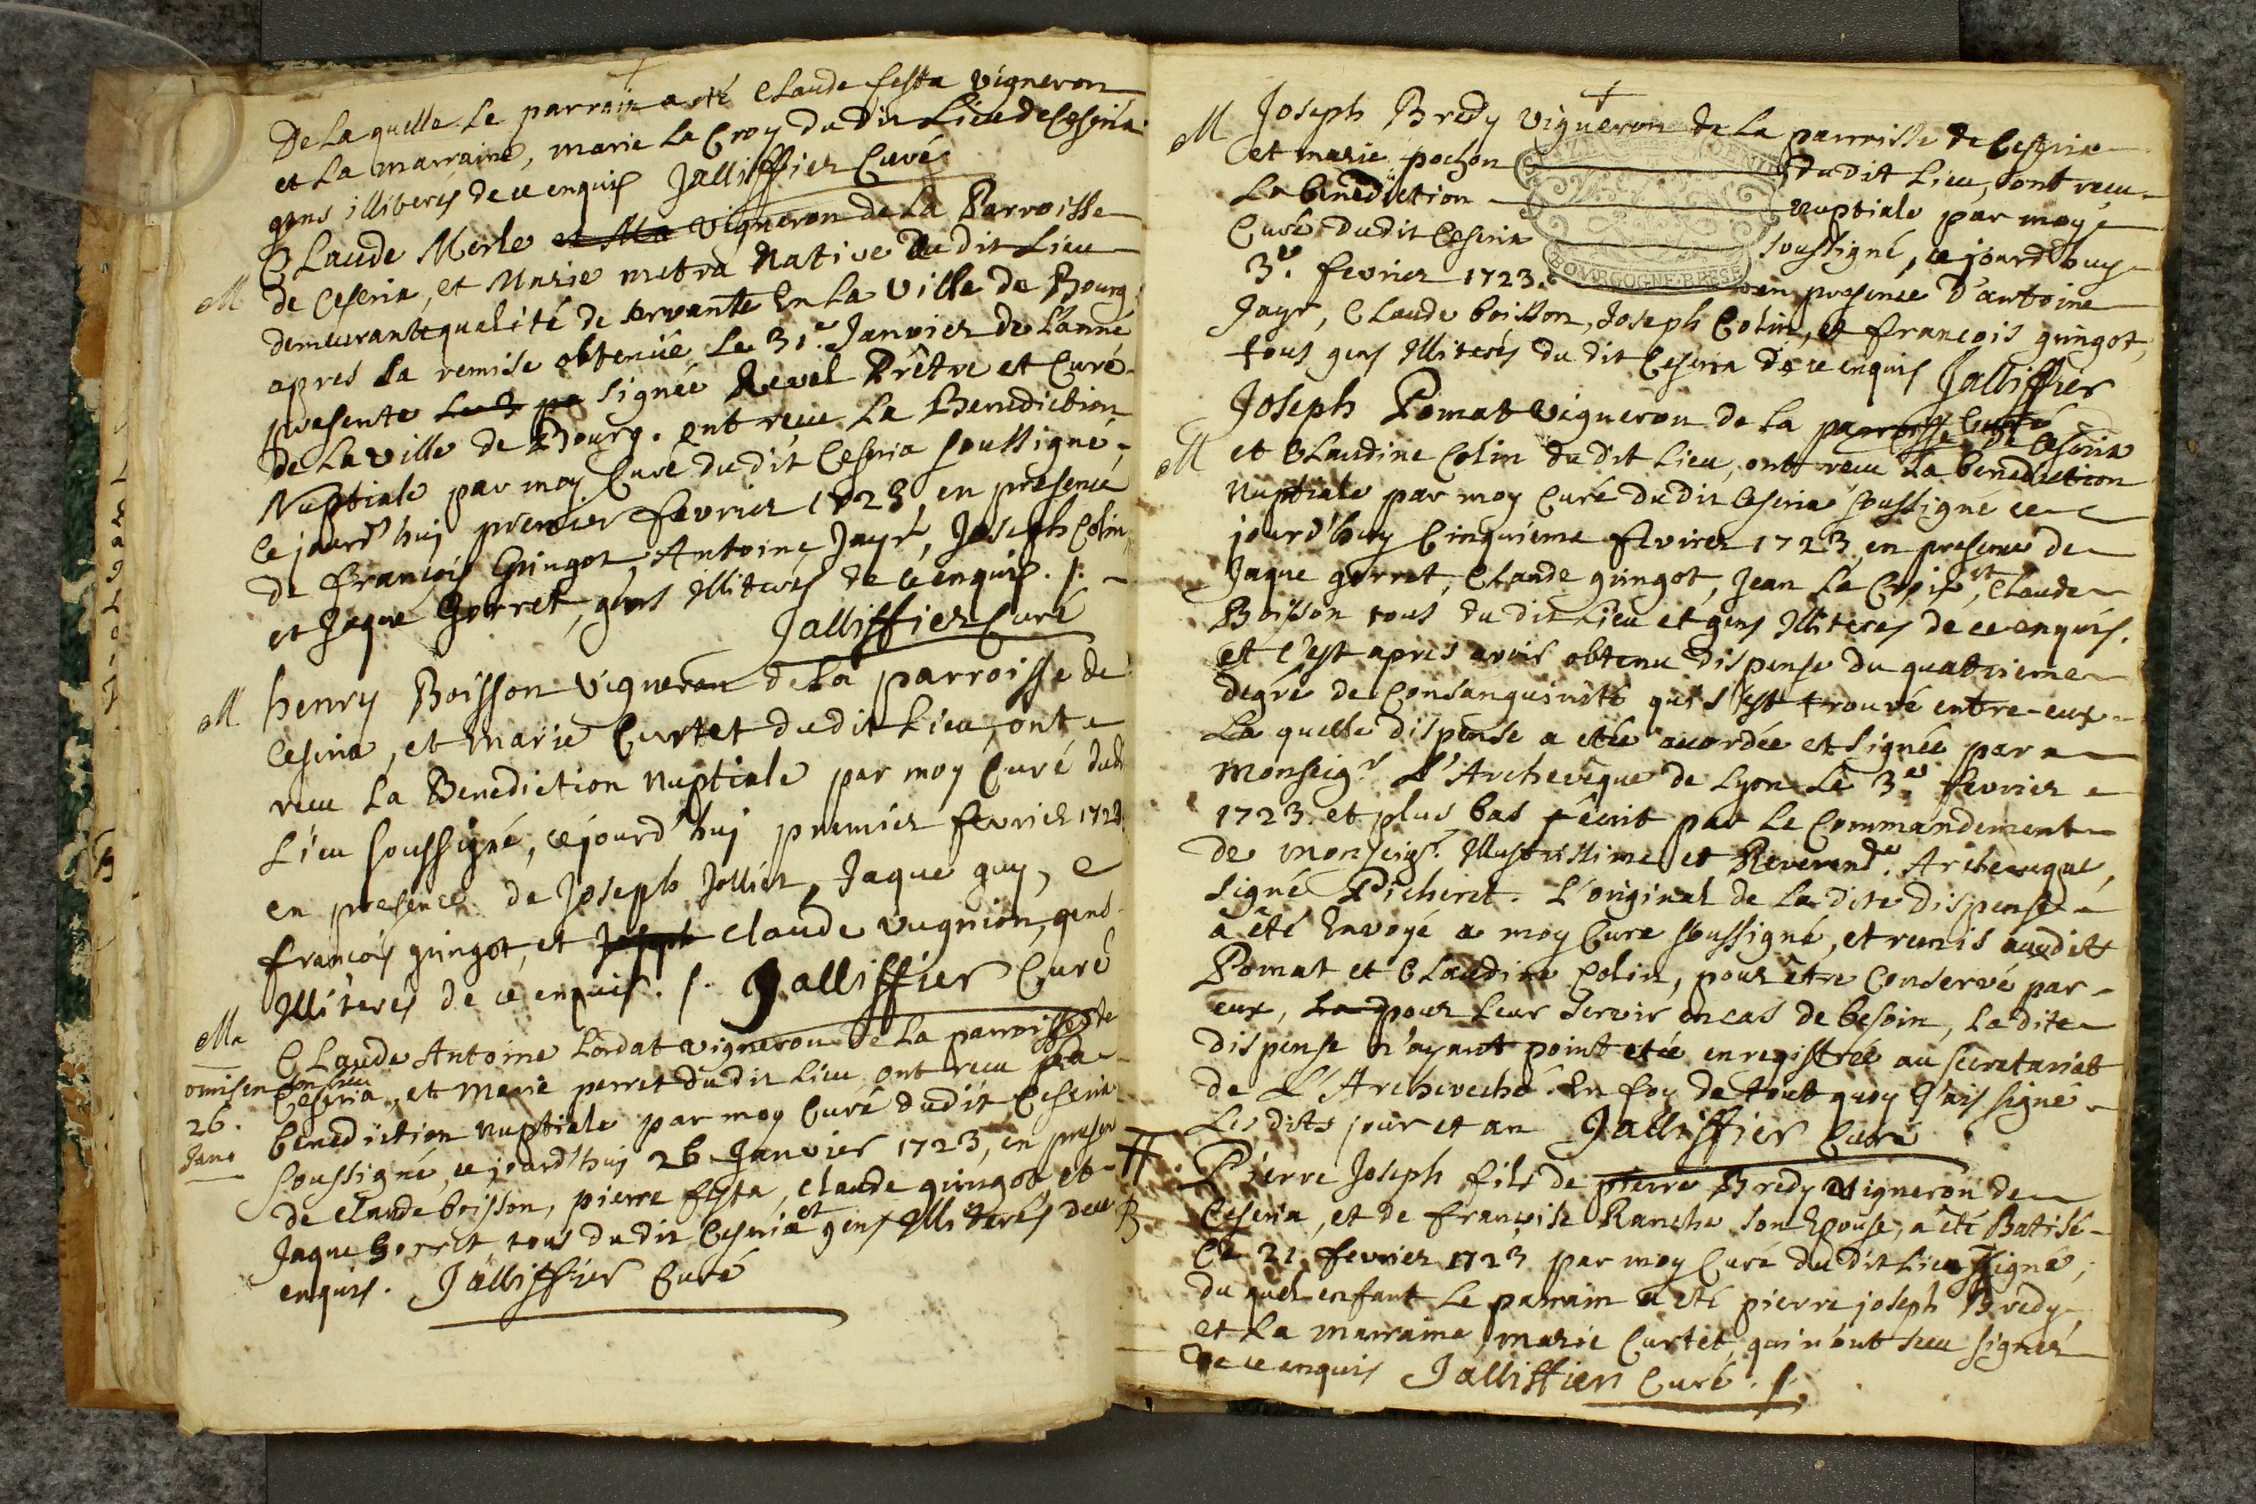 De La quelle Le parrain a eté Claude festa vigneron
et La marraine, marie La Croy du dit Lieu de Ceseria
gens illiterés de ce enquis Jalliffier Curé
M
Claude Merle et Ma vigneron de La Parroisse
de Ceseria, et Marie metra Native du dit Lieu
demeurante qualité de servante En La ville de Bourg;
apres La remise obtenüe Le 31e. Janvier de L'anné
presente Le 3 pa signée Revel Prêtre et Curé
de La ville de Bourg. ont reçu La Benediction
Nuptiale par moy Curé du dit Ceseria soussigné,
ce jourd'huj premier fevrier 1723, en presence
de françois Guingot, Antoine Jayr, Joseph Colin,
et Jaque Gorret, gens illiterés de ce enquis. /.
Jalliffier Curé
M
henry Boisson vigneron de La parroisse de
Ceseria, et marie Curtet du dit Lieu, ont
reçu La Benediction Nuptiale par moy Curé dudt
Lieu soussigné, ce jourd'huj premier fevrier 1723.
en presence de Joseph Jollier, Jaque guy,
françois guingot, et Joseph claude vugnion, gens
illiterés de ce enquis. /. Jalliffier Curé
Ma
omis en son Lieu
26.
Janr
Claude Antoine Lordat vigneron de La parroisse de
Ceseria, et Marie perret du dit Lieu ont reçu La
benediction nuptiale par moy Curé dudit Ceseria
soussigné, ce jourd'huj 26 Janvier 1723, en presen
de claude boisson, pierre festa, claude guingot et
Jaque Gorret, tous du dit Ceseria et gens illiterés de ce
enquis. Jalliffier Curé
M
Joseph Bredy vigneron de La parroisse de Ceseria
et marie pochon dudit Lieu, ont reçu
La benediction Nuptiale par moy
Curé dudit Ceseria soussigné, ce jourd'huy
3e. fevrier 1723. en presence d'antoine
BOURGOGNE-BRESSE
Jayr, Claude boisson, Joseph Colin, et françois guingot,
tous gens illiterés du dit Ceseria de ce enquis Jalliffier
Curé
M
Joseph Pomat vigneron de La parroisse de Ceseria
et Claudine Colin du dit Lieu, ont reçu La benediction
Nuptiale par moy Curé du dit Ceseria soussigné ce
jourd'huy Cinquieme fevrier 1723, en presence de
Jaque gorret, Claude guingot, Jean La Croix, et Claude
Boisson tous du dit Lieu et gens illiterés de ce enquis.
et c'est apres avoir obtenu dispense du quatrieme
degré de Consanguinité qui s'est trouvé entre-eux
La quelle dispense a etée accordée et signée par
Monseigr L'Archevêque de Lyon Le 3e. fevrier
1723. et plus bas écrit par Le Commandement
de Monseigr. Illustrissime et Reverendme. Archeveque,
signé Picheret. L'original de La dite dispense
a été Envoyé a moy Curé soussigné, et remis audit
Pomat et Claudine Colin, pour être Conservé par
eux, La pour Leur servir en cas de besoin, La dite
dispense n'ayant point etée enregistrée au secretariat
de L'Archeveché. En foy de tout quoy J'ais signé
Les dits jour et an Jalliffier Curé
B
Pierre Joseph fils de pierre Bredy vigneron de
Ceseria, et de françoise Ranche son Epouse, a été Batisé
Ce 21. fevrier 1723 par moy Curé du dit Lieu signé,
du quel enfant Le parrain a eté pierre joseph Bredy,
et La marraine, marie Curtet, qui n'ont sceu signer
de ce enquis Jalliffier Curé. /.